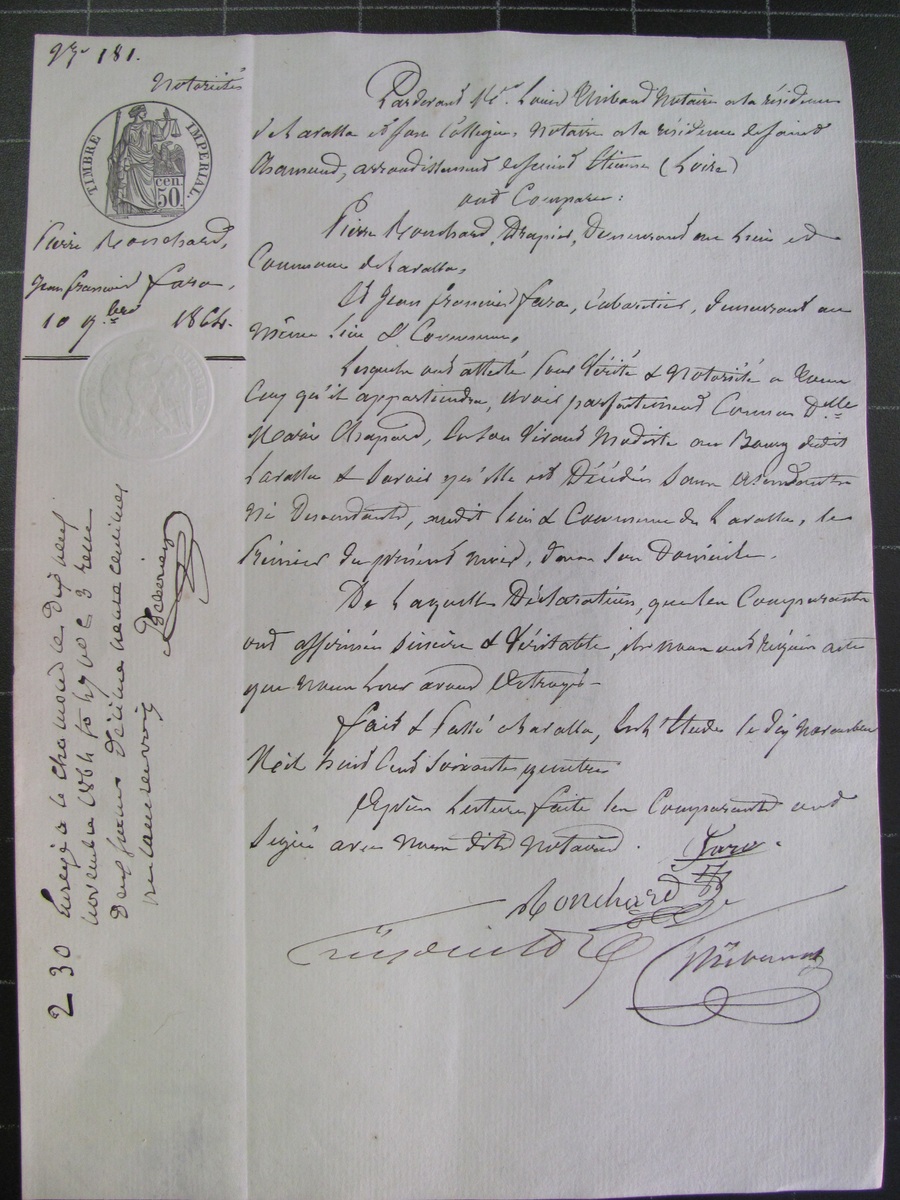 181.
Notoriétés
TIMBRE IMPERIAL.
50 cen.
Pierre Ronchard,
Jean françois fara,
10 9bre 1864.
Pardevant Me. Louis Thibaud Notaire à la résidence
de Lavalla et son Collègue Notaire à la résidence de Saint
Chamond, arrondissement de Saint Etienne (Loire)
ont Comparu:
Pierre Ronchard, Drapier, Demeurant au Lieu et
Commune de Lavalla,
Et Jean françois fara, Cabaretier, demeurant au
même lieu & Commune,
Lesquels ont attesté pour Vérité & Notoriété à tous
Ceux qu'il appartiendra, avoir parfaitement Connu Dlle
Marie Chapard, en son vivant Modiste au Bourg dudit
Lavalla & savoir qu'elle est Décédée sans ascendants
Ni Descendants, audit lieu & Commune de Lavalla, le
Premier du présent mois, dans son Domicile.
De Laquelle Déclaration, que les Comparants
ont affirmée sincère & Véritable, ils nous ont requis acte
que nous leur avons Octroyé-
fait & Passé à Lavalla, En l'Etude le dix Novembre
Mil huit Cent soixante quatre
Après Lecture faite les Comparants ont
Signé avec Nous dits Notaires. Fara.
Ronchard
Thibaud
Enregé à St chamond le dix neuf
novembre 1864 fo 47 vo C 3 reçu
Deux francs décime trente centimes
2 30